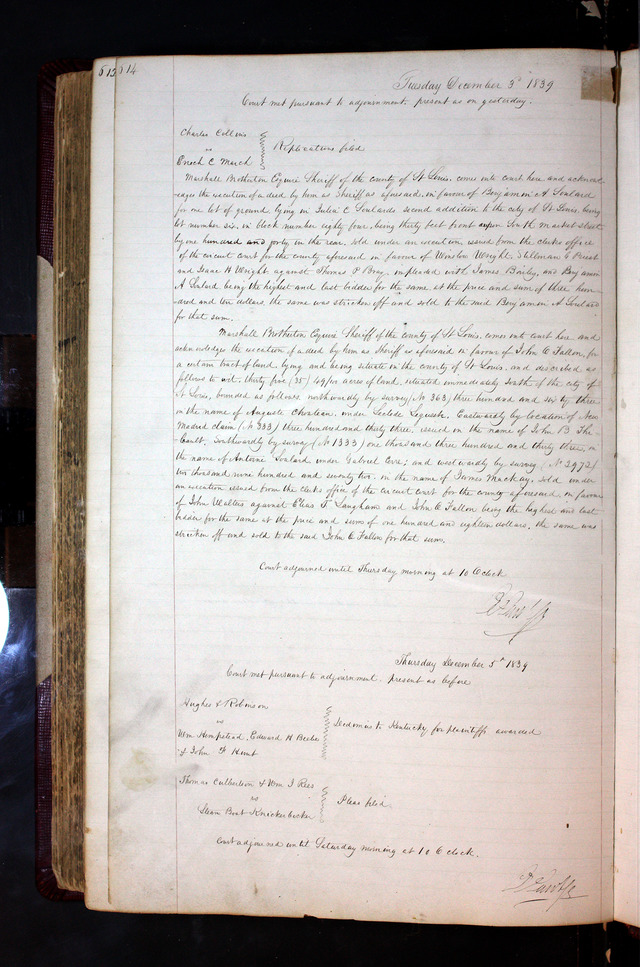 614
Tuesday December 3d 1839
Court met pursuant to adjournment, present as on yesterday.
Charles Collins
vs
Enoch C March
Replications filed
Marshall Brotherton Esquire Sheriff of the county of St Louis, comes into court here and acknowl
-edges the execution of a deed by him as Sheriff as aforesaid, in favour of Benjamin A Soulard
for one lot of ground, lying in Julia C. Soulards second addition to the city of St Louis, being
lot number six, in block number eighty four, being thirty feet front upon South market street
by one hundred and forty in the rear. sold under an execution, issued from the clerks office
of the circuit court for the county aforesaid in favour of Winslow Wright, Stillman
and Isaac H Wright against Thomas P Bray, impleaded with James Baily, and Benjamin
A Soulard being the highest and last bidder for the same at the price and sum of three hun-
dred and ten dollars, the same was stricken off and sold to the said Benjamin A Soulard
for that sum.
Marshall Brotherton Esquire Sheriff of the county of St Louis, comes into court here and
acknowledges the execution of a deed by him as Sheriff as aforesaid, in favour of John O Fallon, for
a certain tract of land, lying and being situate in the county of St Louis, and described as
follows to wit, thirty five (35) 49/100 acres of land, situated immediately South of the city of
St Louis, bounded as follows, northwardly by survey (No 363) three hundred and sixty three
in the name of Auguste Chouteau, under Laclede Leguest, Eastwardly by location of New
Madrid claim (No 333) three hundred and thirty three, issued in the name of John B The-
bault, Southwardly by survey (No 1333) one thousand three hundred and thirty three, in
the name of Antoine Soulard under Gabriel Cere; and westwardly by survey (No 2972)
two thousand nine hundred and seventy two, in the name of James Mackay, sold under
an execution issued from the clerks office of the circuit court for the county aforesaid, in favour
of John Walters against Elias T Langham and John O Fallon being the highest and last
bidder for the same at the price and sum of one hundred and eighteen dollars, the same was
stricken off and sold to the said John O Fallon for that sum.
Court adjourned until Thursday morning at 10 O Clock
Thursday December 5th 1839
Court met pursuant to adjournment. present as before
Hughes & Robinson
vs
Wm Hempstead, Edward H Beebe
& John F Hunt
Dedimus to Kentucky for plaintiffs awarded
Thomas Culbertson & Wm I Rees
vs
Steam Boat Knickerbocker
Pleas filed
Court adjourned until Saturday morning at 10 O clock.